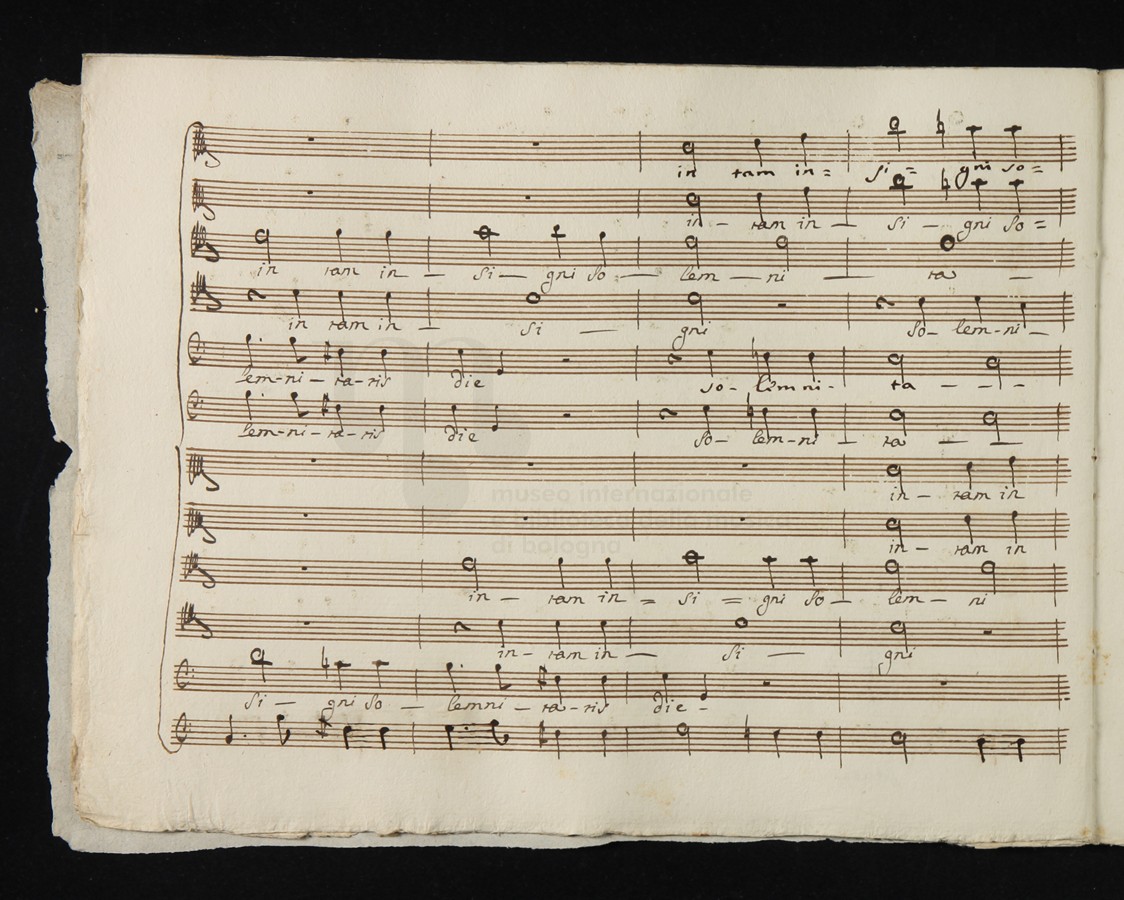 in tam in= si= gni so=
in – tam in – si – gni so=
in tam in – si – gni so – lem – ni – ta –
in tam in – si – gni so– lem–ni –
lem–ni – ta–ris die so– lemni– ta – – –
lem–ni – ta–ris die so– lem–ni – ta – –
museo internazionale
in – tam in
e biblioteca della musica
di bologna
in – tam in
in – tam in = si = gni so – lem – ni
in – tam in – si – gni
si – gni so – lemni – ta–ris die –